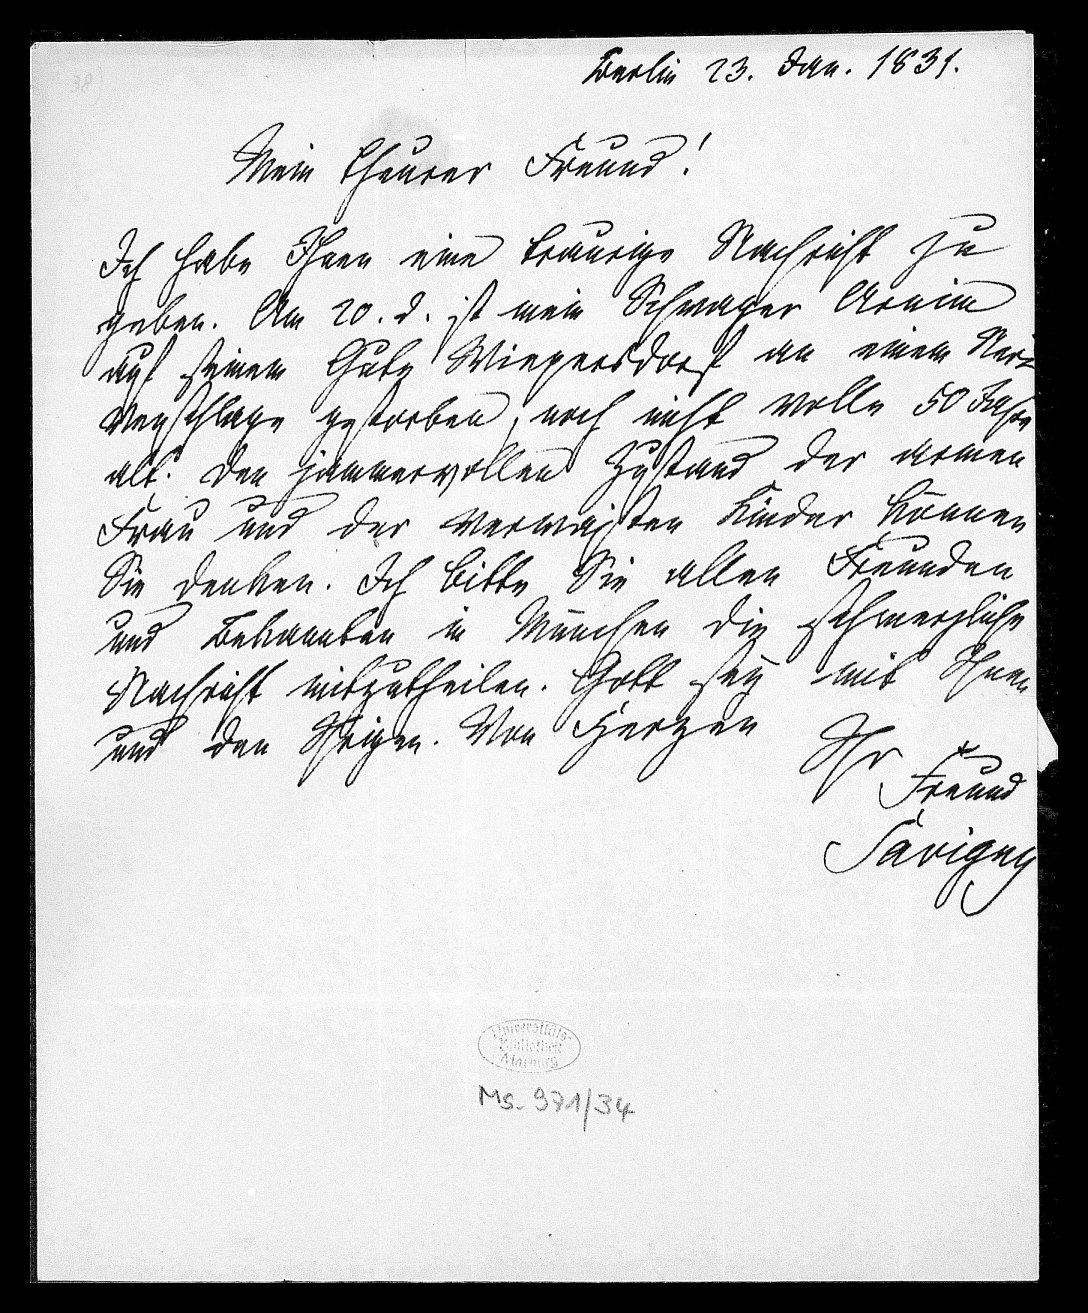 38)
Berlin 23. Jan. 1831.
Mein theurer Freund!
Ich habe Ihnen eine traurige Nachricht zu
geben. Am 20. d. ist mein Schwager Arnim
auf seinem Gute Wiepersdorf an einem Ner=
venschlage gestorben, noch nicht volle 50 Jahre
alt. Den jammervollen Zustand der armen
Frau und der verwaisten Kinder können
Sie denken. Ich bitte Sie allen Freunden
und Bekannten in München die schmerzliche
Nachricht mitzutheilen. Gott sey mit Ihnen
und den Ihrigen. Von Herzen
Ihr
Freund
Savigny
Universitäts-
Bibliothek
Marburg
Ms. 971/34